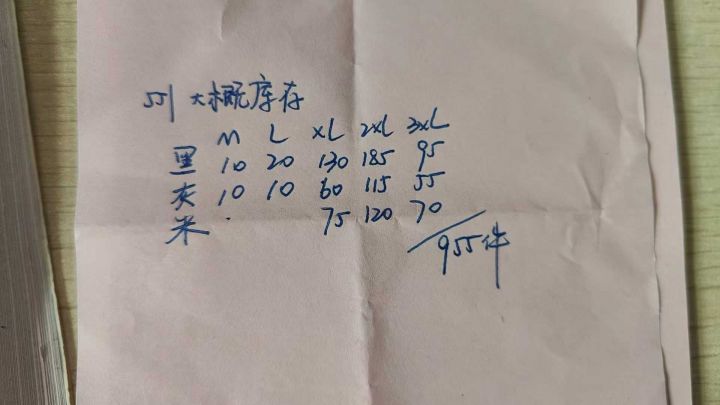 551 大概库存
M L XL 2XL 3XL
黑 10 20 130 185 95
灰 10 10 60 115 55
米 75 120 70
955件